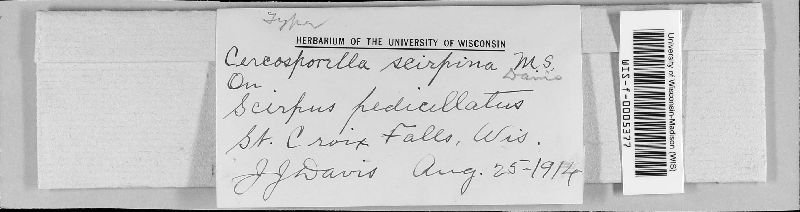 Type
HERBARIUM OF THE UNIVERSITY OF WISCONSIN
Cercosporella scirpina M.S.
Davis
On
Scirpus pedicellatus
St. Croix Falls, Wis.
J J Davis Aug. 25-1914
University of Wisconsin-Madison (WIS)
WIS-f-0005377